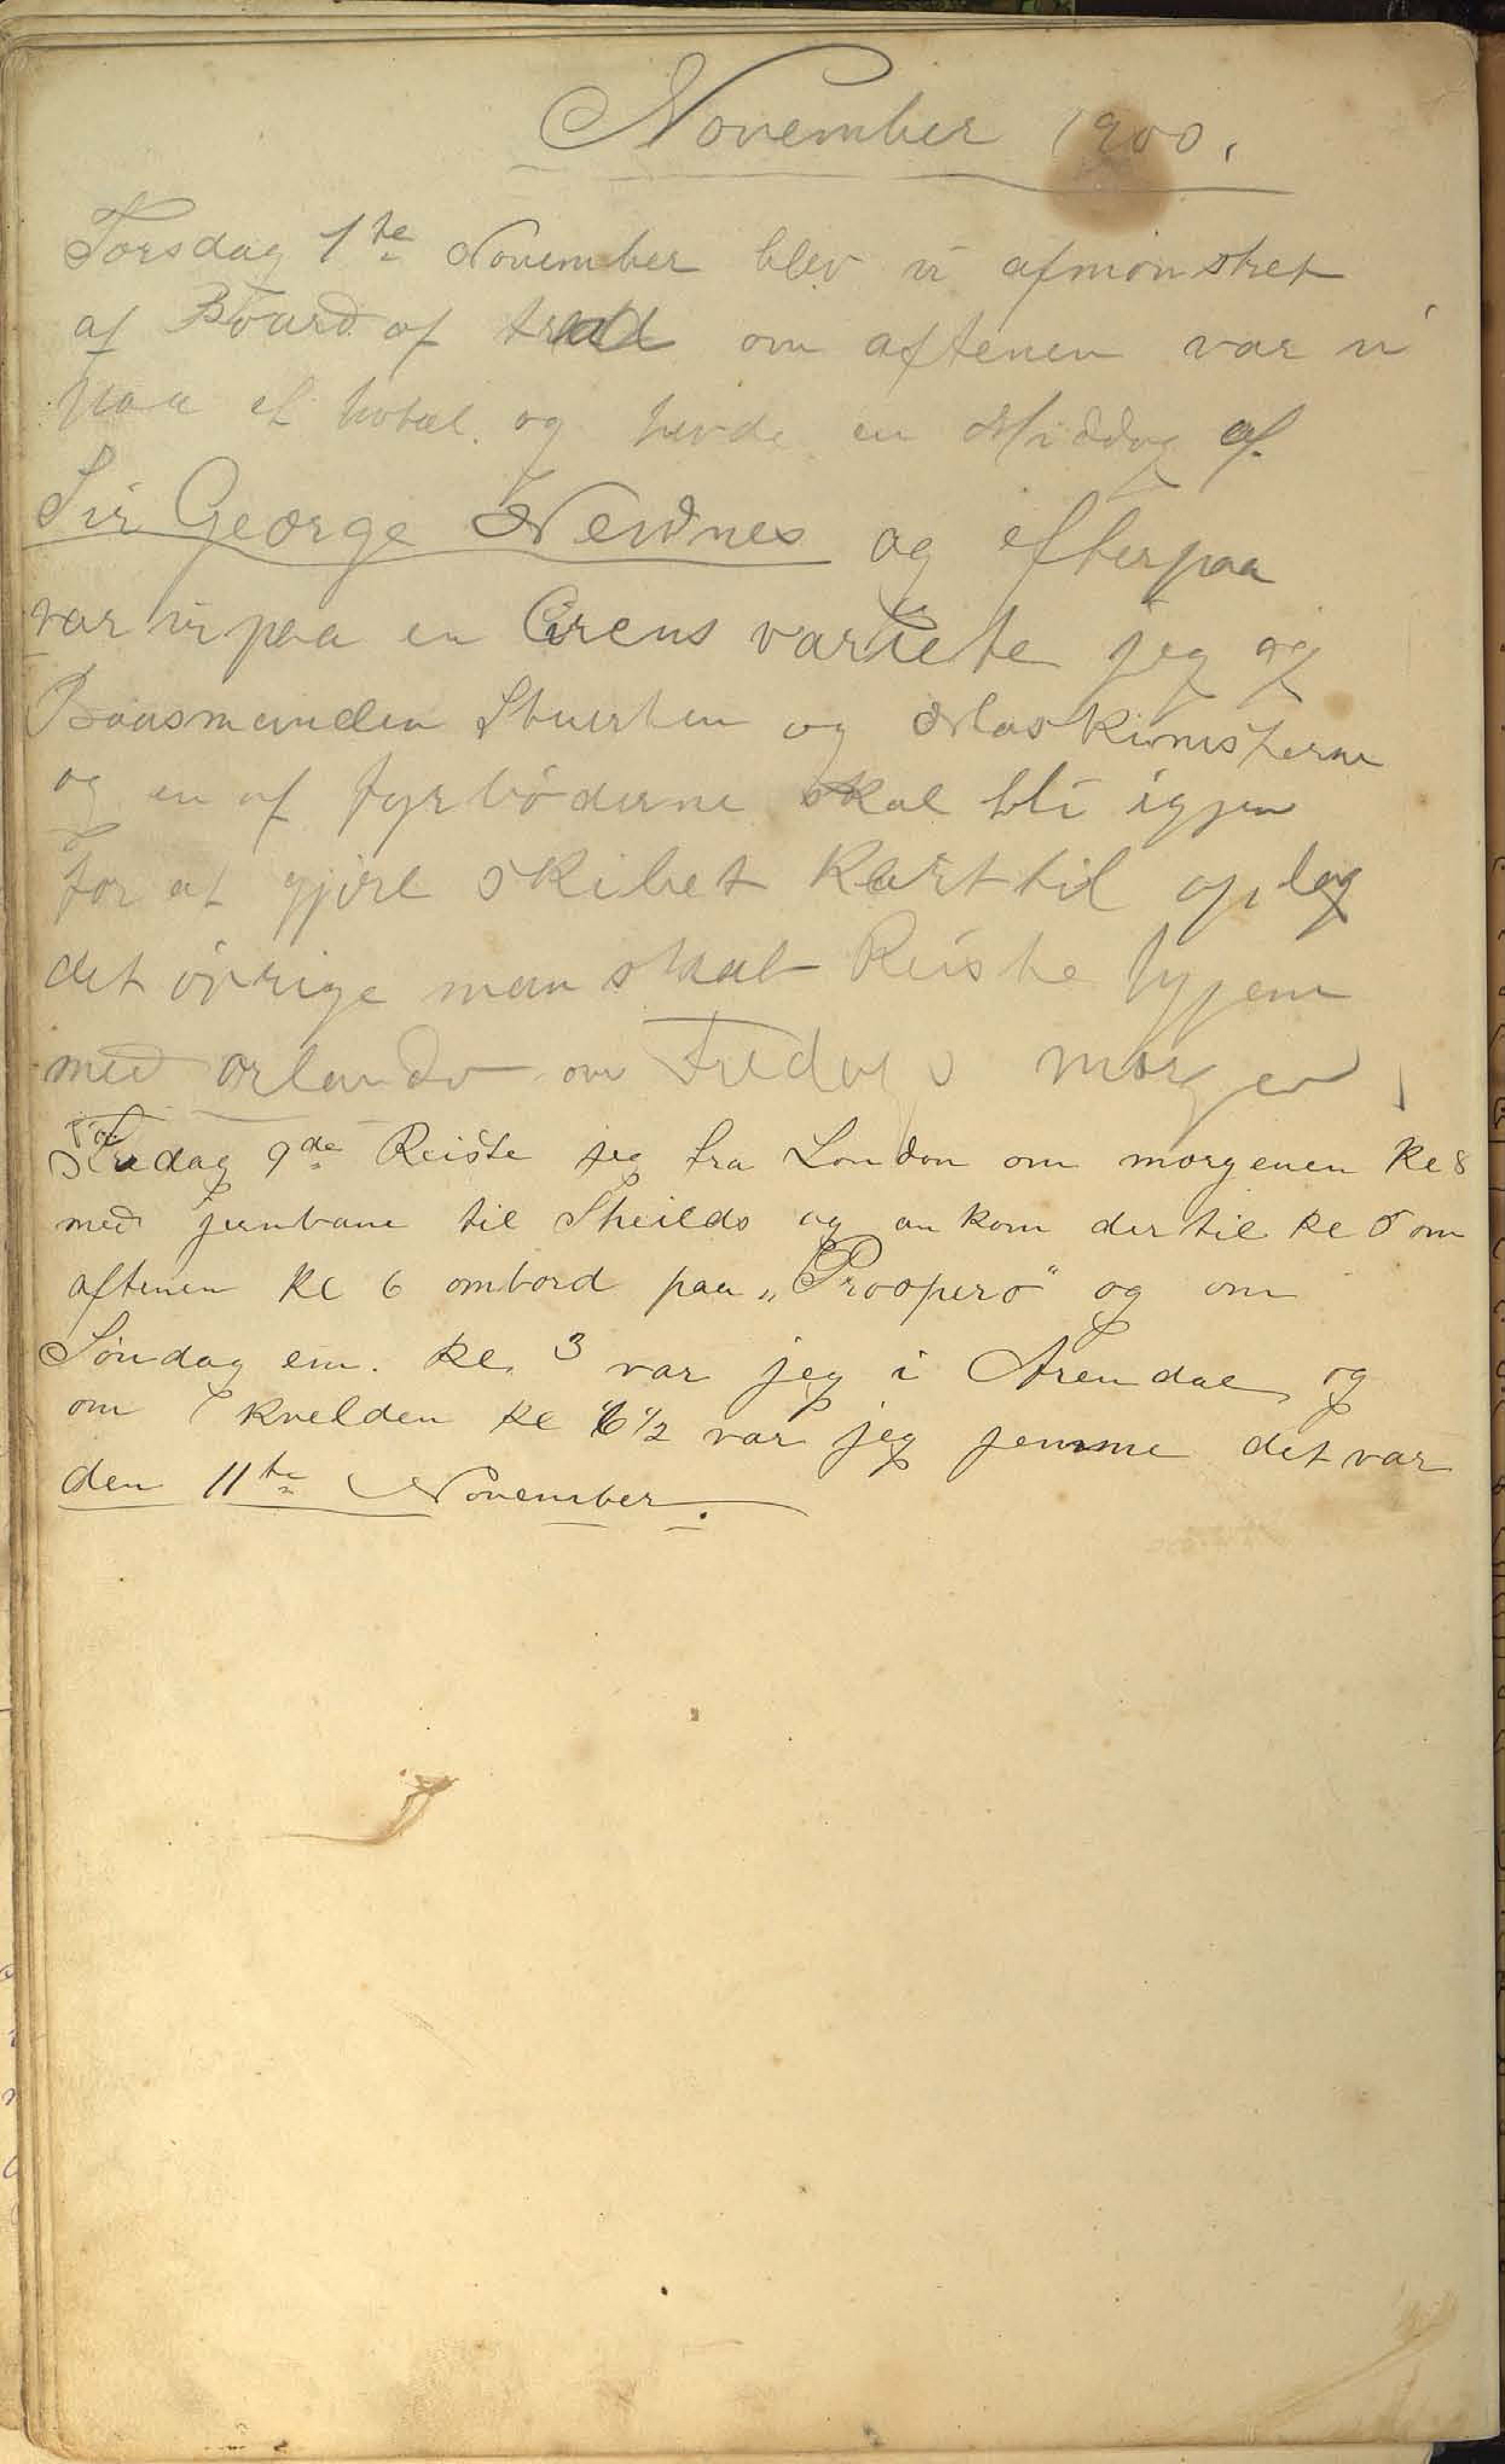 November 1900.
Torsdag 1te November blev vi afmönstret
af Board of trad om aftenen var vi
paa et hotel og havde en Middag af
Sir George Newnes og efterpaa
var vi paa en Circus variete jeg og
Baasmanden Stuerten og Maskinisterne
og en af fyrböderne skal bli igjen
for at gjöre skibet klart til oplag
det övrige manskab Reiste hjem
med Orlando om Fredags morgen
Fredag 9de Reiste jeg fra London om morgenen kl 8
med jernbane til Sheilds og an kom dertil kl 5 om
aftenen kl 6 ombord paa „Prospero" og om
Söndag em. kl 3 var jeg i Arendal og
om kvelden kl 6 1/2 var jeg jemme det var
den 11te November.